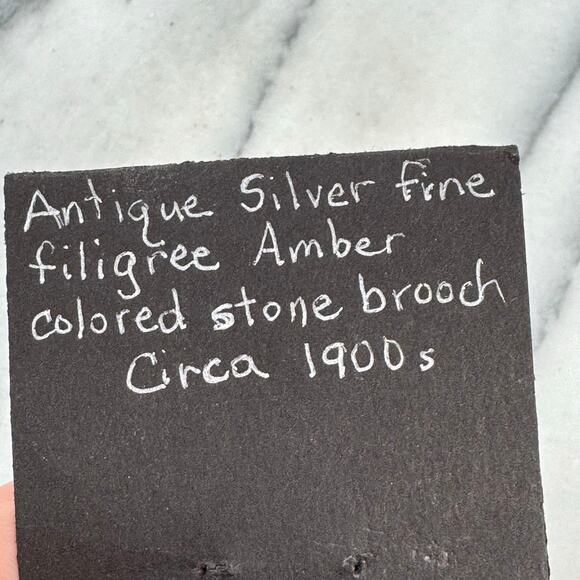 Antique Silver fine
filigree Amber
colored stone brooch
Circa 1900s